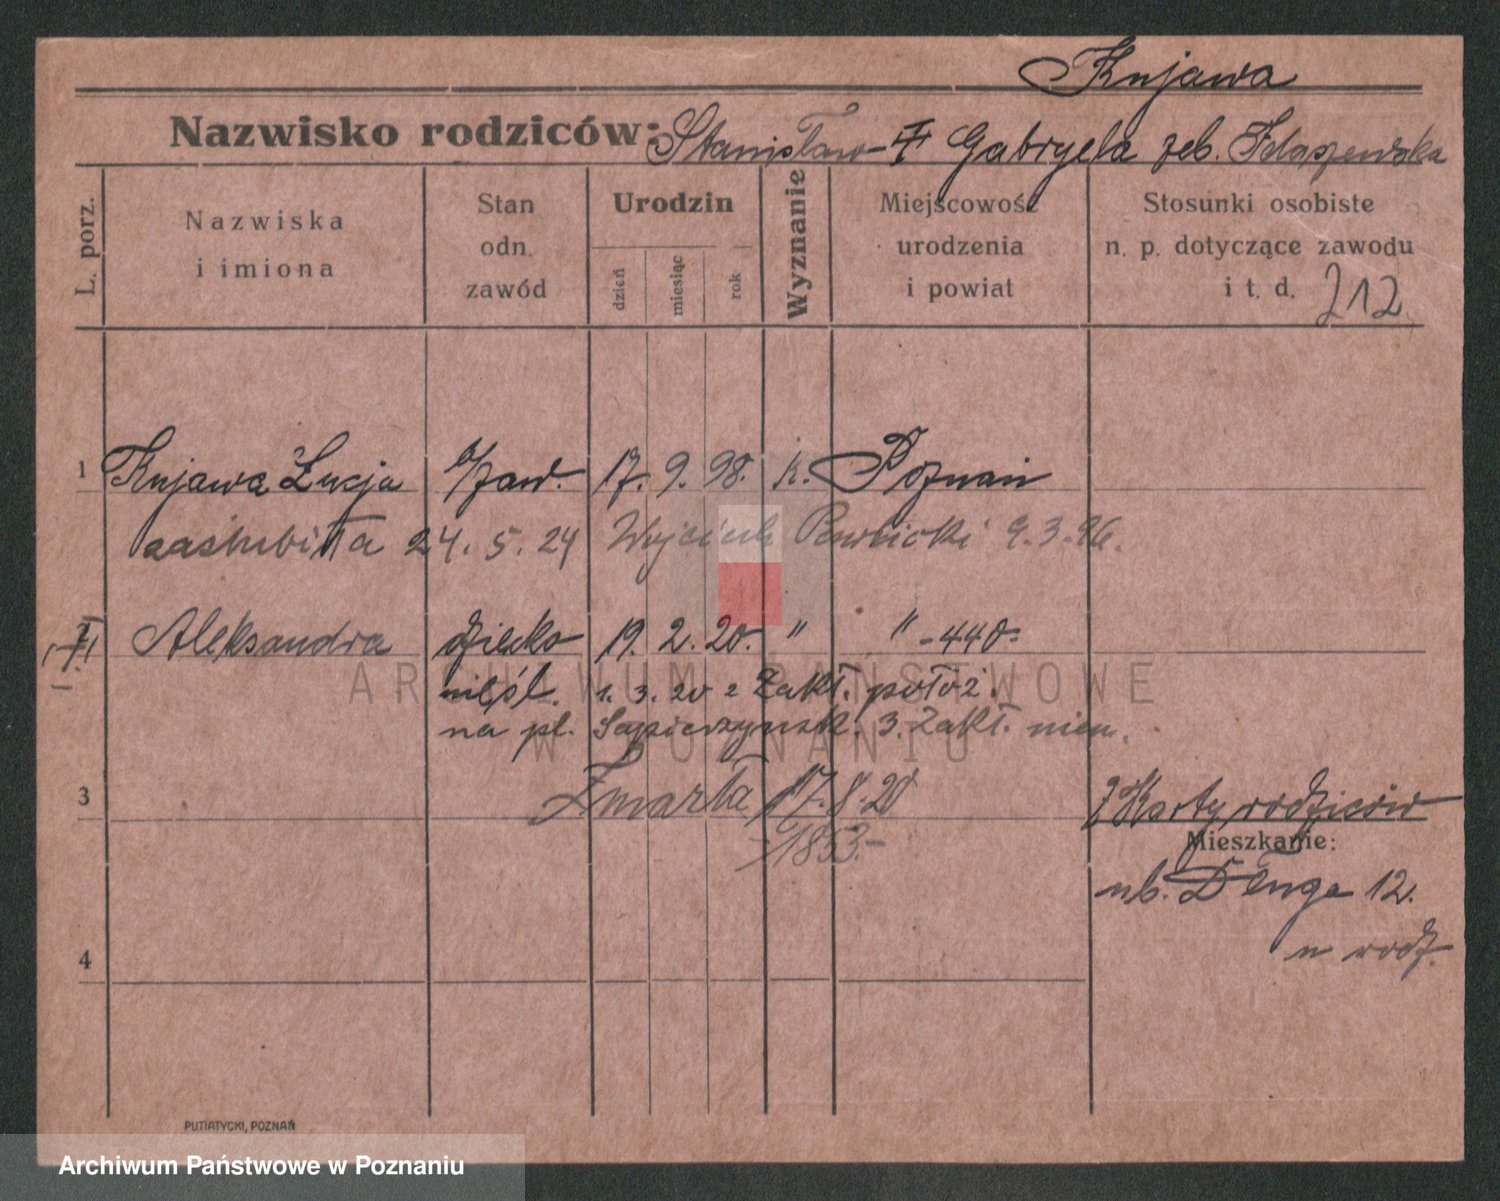 Kujawa
Nazwisko rodziców: Stanisław Gabryela
L. porz.
Nazwiska
i imiona
Stan
odn.
zawód
Urodzin
dzień
miesiąc
rok
Wyznanie
Miejscowość
urodzenia
i powiat
Stosunki osobiste
n. p. dotyczące zawodu
i t. d. 212
1 Kujawa Łucja 17. 9. 98. k. Poznań
zaślubiła 24. 5. 24 Wojciech Pawlicki 9. 3. 96.
Aleksandra dziecko 19. 2. 20. " " -440-
nieśl. 1. 3. 20 z Zakł. położ.
na pl. Sapierzynsk. 3. Zakł. niem.
3 Zmarła 17. 8. 20
-1853.-
Karty rodziców
Mieszkanie:
Długa 12.
4
PUTIATYCKI, POZNAŃ
ARCHIWUM PAŃSTWOWE
W POZNANIU
Archiwum Państwowe w Poznaniu